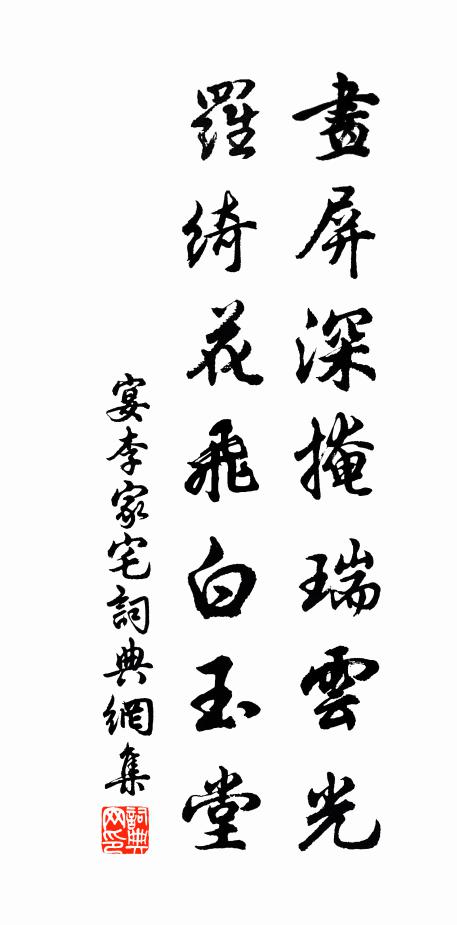 畫屏深掩瑞雲光
羅綺花飛白玉堂
宴李家宅詞典網集
詞典网印